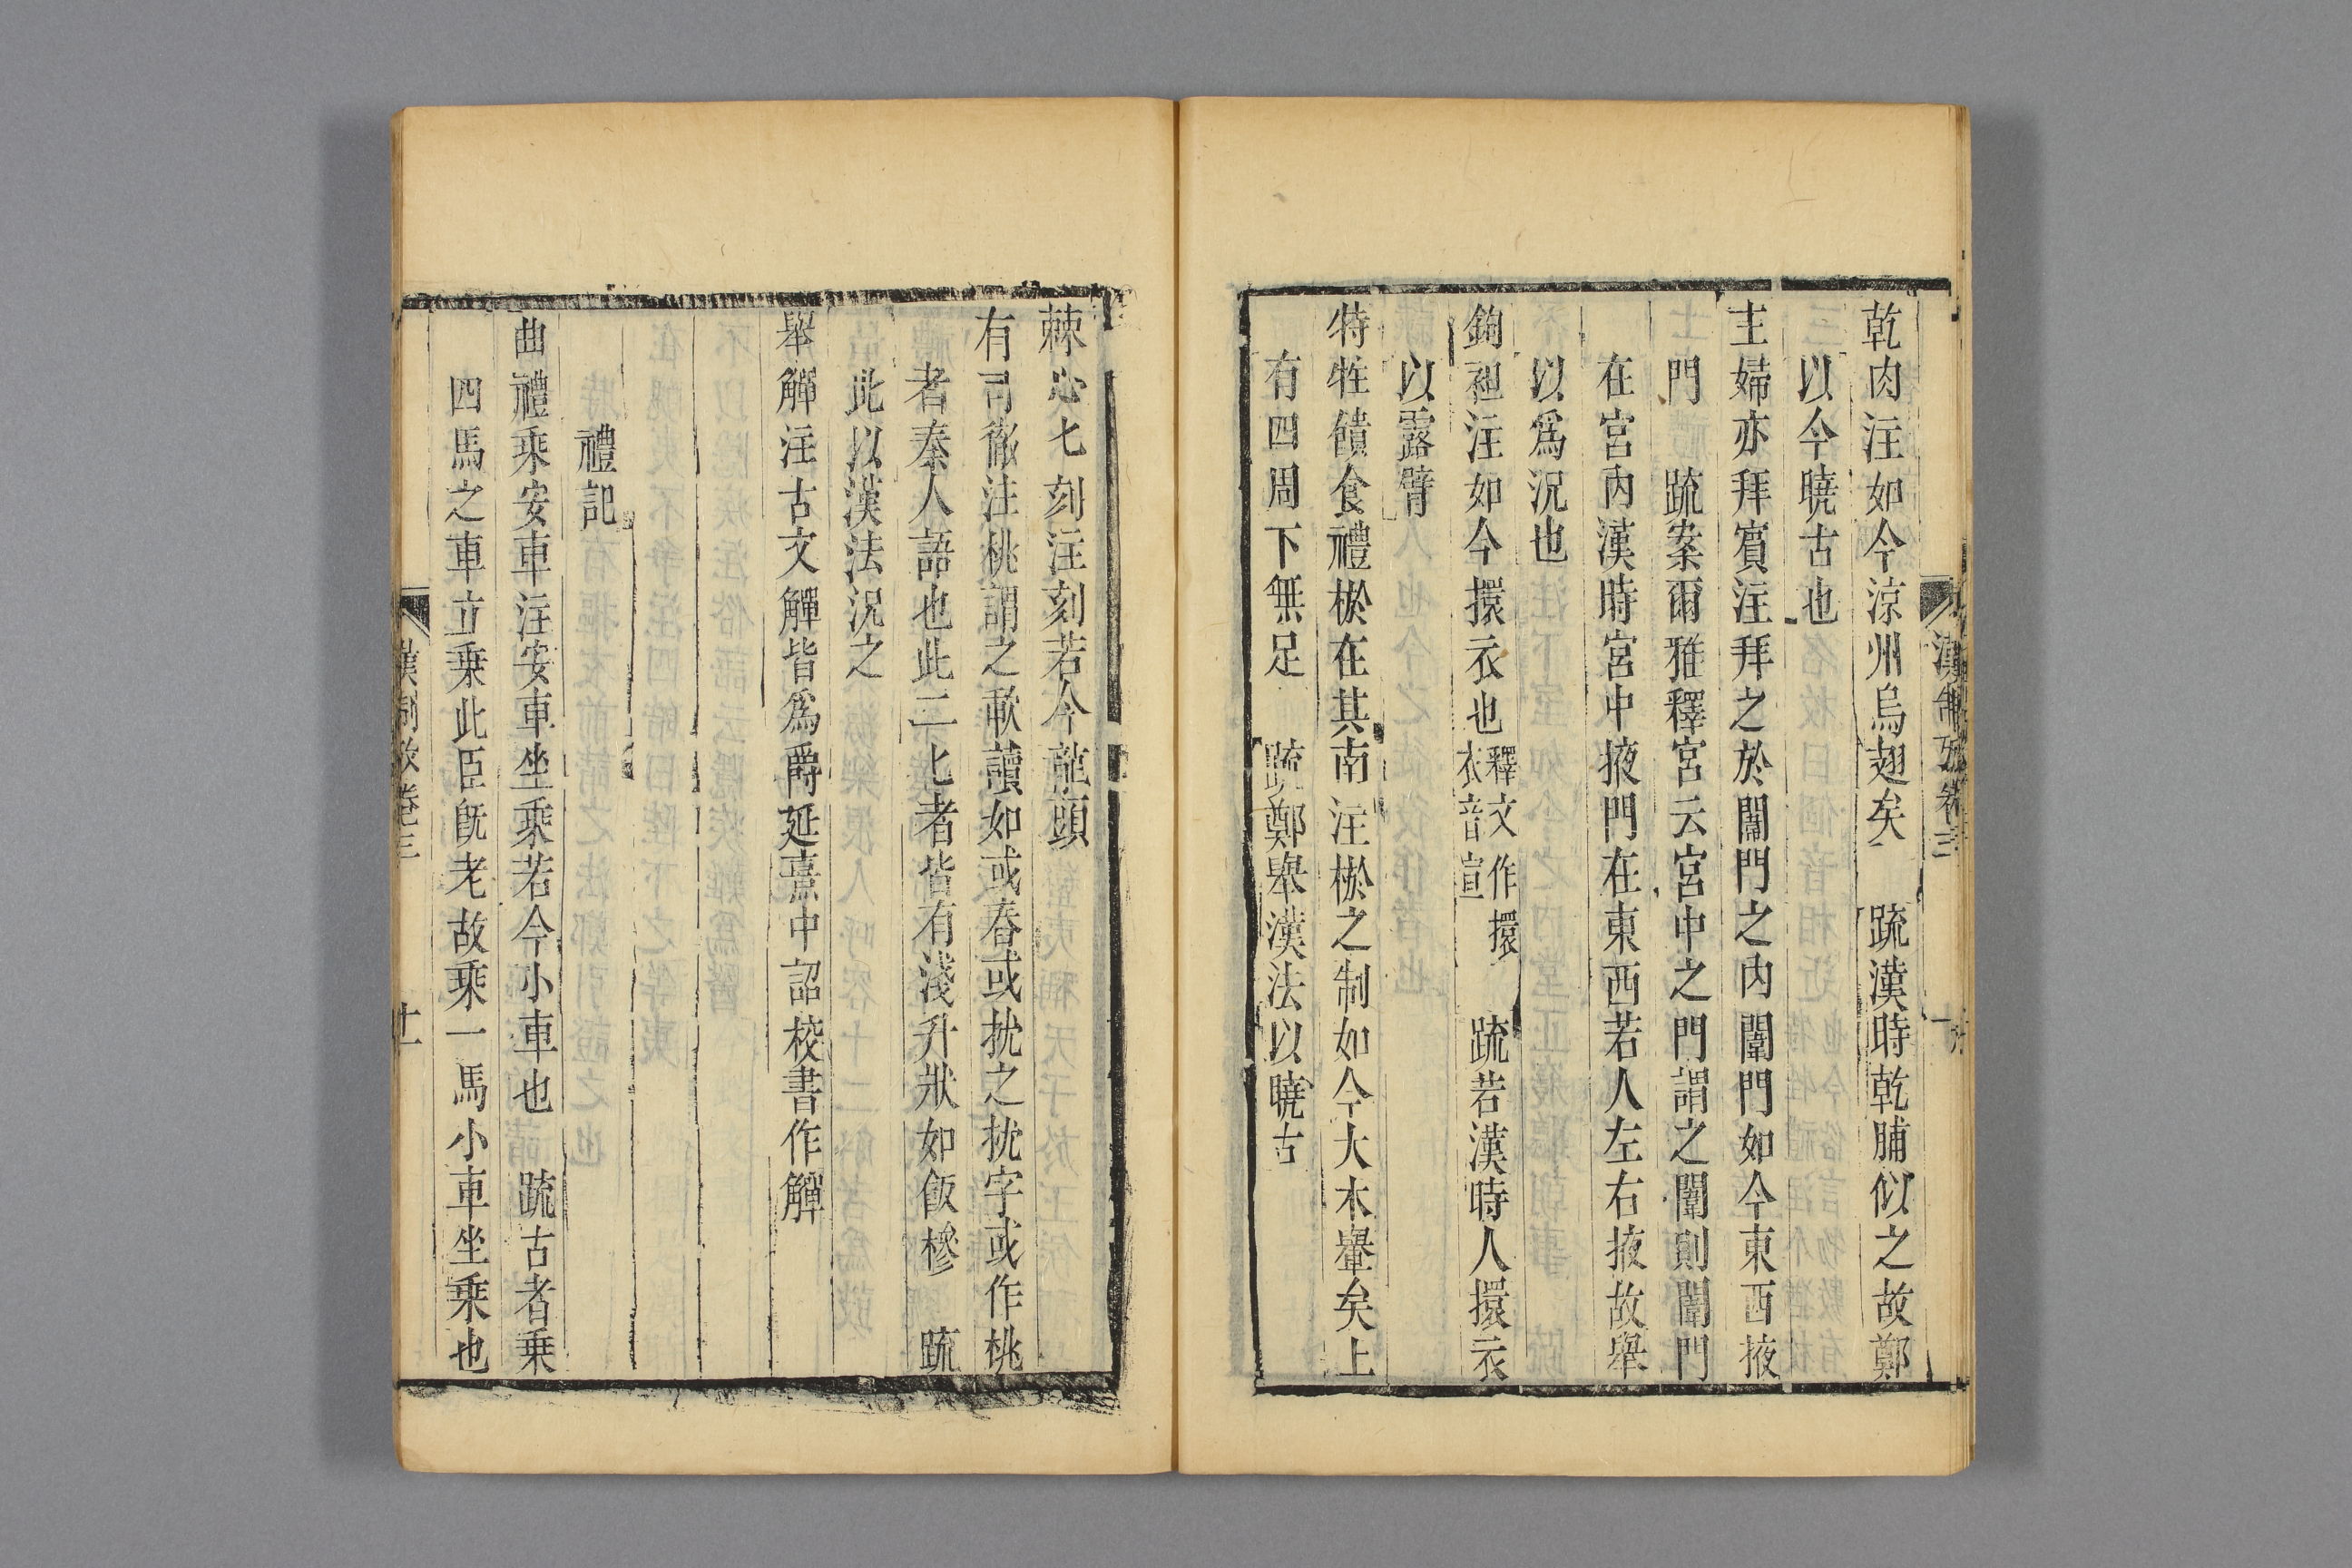 漢制攷卷三
乾肉注如今涼州烏翅矣　疏漢時乾脯似之故鄭
以今曉古也
主婦亦拜賓注拜之於闈門之內闈門如今東西掖
門　疏案爾雅釋宮云宮中之門謂之闈則闈門
在宮內漢時宮中掖門在東西若人左右掖故舉
以爲況也
鉤袒注如今擐衣也釋文作擐衣音宣　疏若漢時人擐衣
以露臂
特牲饋食禮棜在其南注棜之制如今大木轝矣上
有四周下無足　疏鄭舉漢法以曉古
棘心匕刻注刻若今龍頭
有司徹注桃謂之歃讀如或舂或抌之抌字或作桃
者秦人語也此二匕者皆有淺升狀如飯橾　疏
此以漢法況之
舉觶注古文觶皆爲爵延熹中詔校書作觶
禮記
曲禮乘安車注安車坐乘若今小車也　疏古者乗
四馬之車立乗此臣旣老故乗一馬小車坐乗也
漢制攷卷三　十一